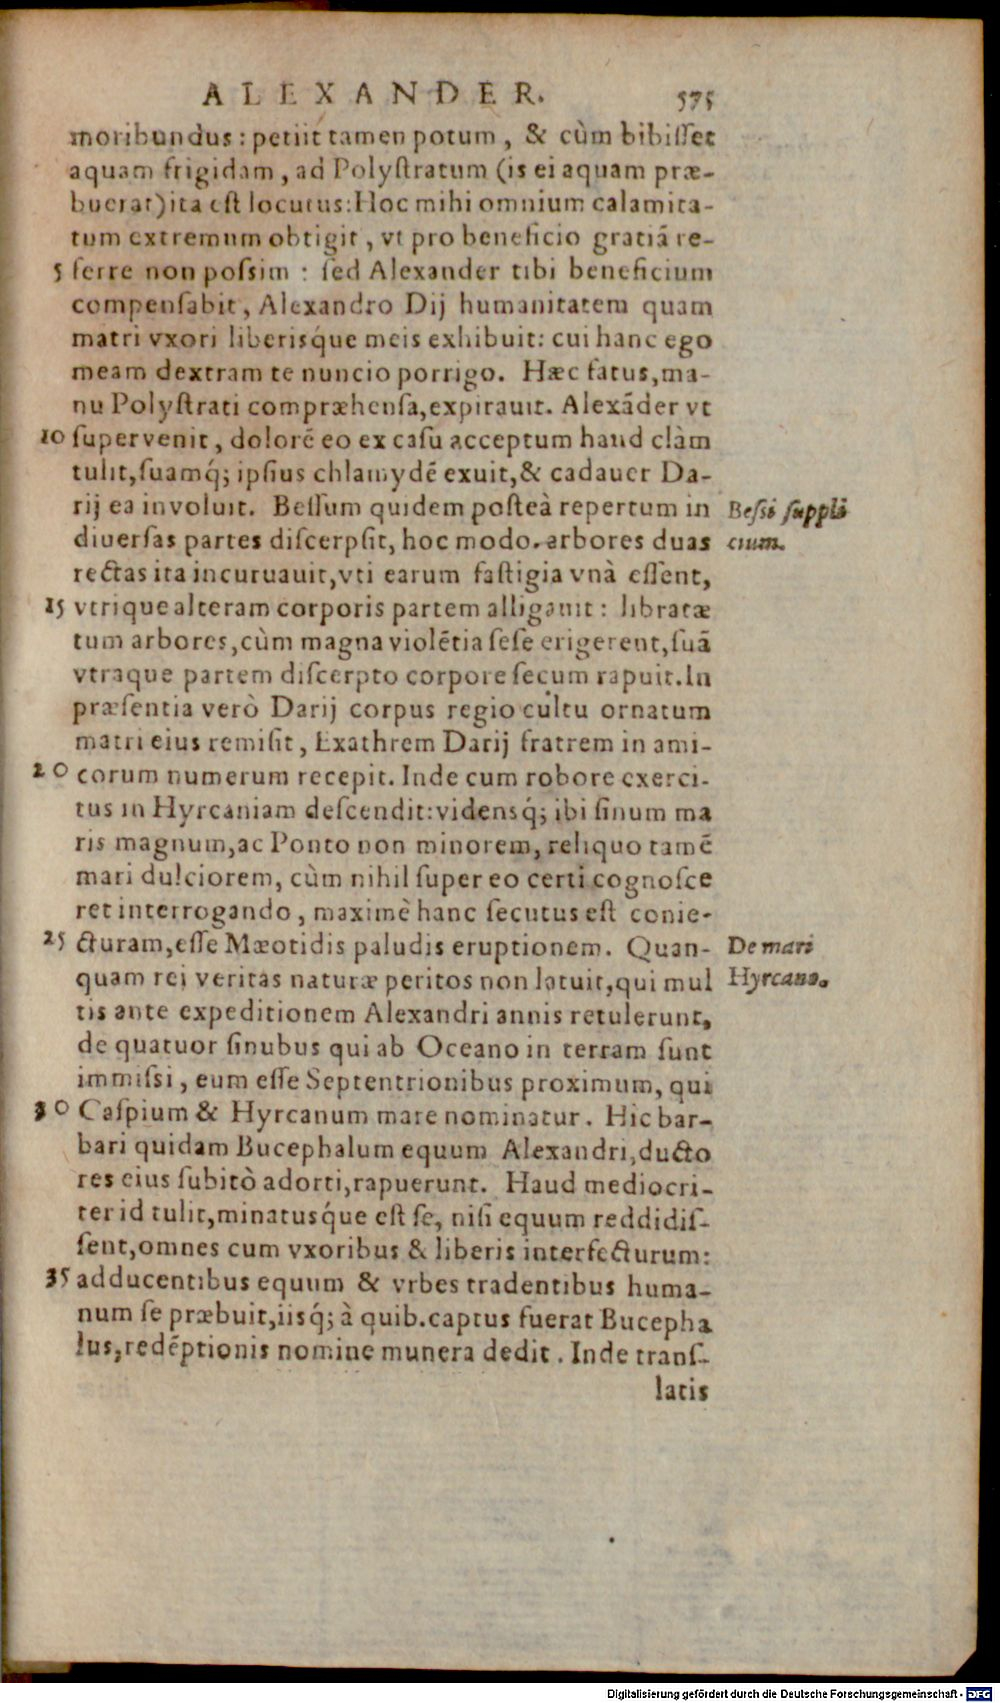 ALEXANDER. 575
moribundus: petiit tamen potum, & cùm bibiſſet
aquam frigidam, ad Polyſtratum (is ei aquam præ-
buerat) ita eſt locutus: Hoc mihi omnium calamita-
tum extremum obtigit, vt pro beneficio gratiã re-
5 ferre non poſsim: ſed Alexander tibi beneficium
compenſabit, Alexandro Dij humanitatem quam
matri vxori liberisq́ue meis exhibuit: cui hanc ego
meam dextram te nuncio porrigo. Hæc fatus, ma-
nu Polyſtrati compræhenſa, expirauit. Alexãder vt
10 ſupervenit, dolorẽ eo ex caſu acceptum haud clàm
tulit, ſuamq́; ipſius chlamydẽ exuit, & cadauer Da-
rij ea involuit. Beſſum quidem poſteà repertum in Beſsi ſuppli
diuerſas partes diſcerpſit, hoc modo. arbores duas cium.
rectas ita incuruauit, vti earum faſtigia vnà eſſent,
15 vtrique alteram corporis partem alligauit: libratæ
tum arbores, cùm magna violẽtia ſeſe erigerent, ſuã
vtraque partem diſcerpto corpore ſecum rapuit. In
præſentia verò Darij corpus regio cultu ornatum
matri eius remiſit, Exathrem Darij fratrem in ami-
20 corum numerum recepit. Inde cum robore exerci-
tus in Hyrcaniam deſcendit: vidensq́; ibi ſinum ma
ris magnum, ac Ponto non minorem, reliquo tamẽ
mari dulciorem, cùm nihil ſuper eo certi cognoſce
ret interrogando, maximè hanc ſecutus eſt conie-
25 cturam, eſſe Mæotidis paludis eruptionem. Quan- De mari
quam rei veritas naturæ peritos non latuit, qui mul Hyrcano.
tis ante expeditionem Alexandri annis retulerunt,
de quatuor ſinubus qui ab Oceano in terram ſunt
immiſsi, eum eſſe Septentrionibus proximum, qui
30 Caſpium & Hyrcanum mare nominatur. Hic bar-
bari quidam Bucephalum equum Alexandri, ducto
res eius ſubitò adorti, rapuerunt. Haud mediocri-
ter id tulit, minatusq́ue eſt ſe, niſi equum reddidiſ-
ſent, omnes cum vxoribus & liberis interfecturum:
35 adducentibus equum & vrbes tradentibus huma-
num ſe præbuit, iisq́; à quib. captus fuerat Bucepha
lus, redẽptionis nomine munera dedit. Inde tranſ-
latis
Digitalisierung gefördert durch die Deutsche Forschungsgemeinschaft - DFG